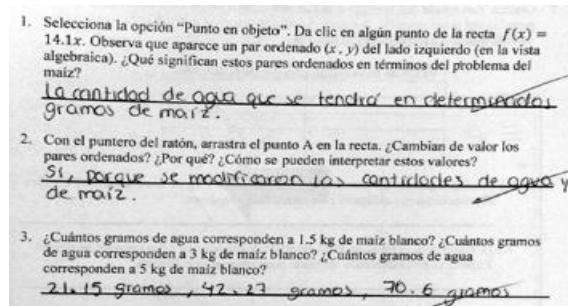 1. Selecciona la opción “Punto en objeto”. Da clic en algún punto de la recta f(x) =
14.1x. Observa que aparece un par ordenado (x , y) del lado izquierdo (en la vista
algebraica). ¿Qué significan estos pares ordenados en términos del problema del
maíz?
La cantidad de agua que se tendrá en determinados
gramos de maíz.
2. Con el puntero del ratón, arrastra el punto A en la recta. ¿Cambian de valor los
pares ordenados? ¿Por qué? ¿Cómo se pueden interpretar estos valores?
Si, porque se modificaron las cantidades de agua y
de maíz.
3. ¿Cuántos gramos de agua corresponden a 1.5 kg de maíz blanco? ¿Cuántos gramos
de agua corresponden a 3 kg de maíz blanco? ¿Cuántos gramos de agua
corresponden a 5 kg de maíz blanco?
21.15 gramos , 42.27 gramos , 70.6 gramos